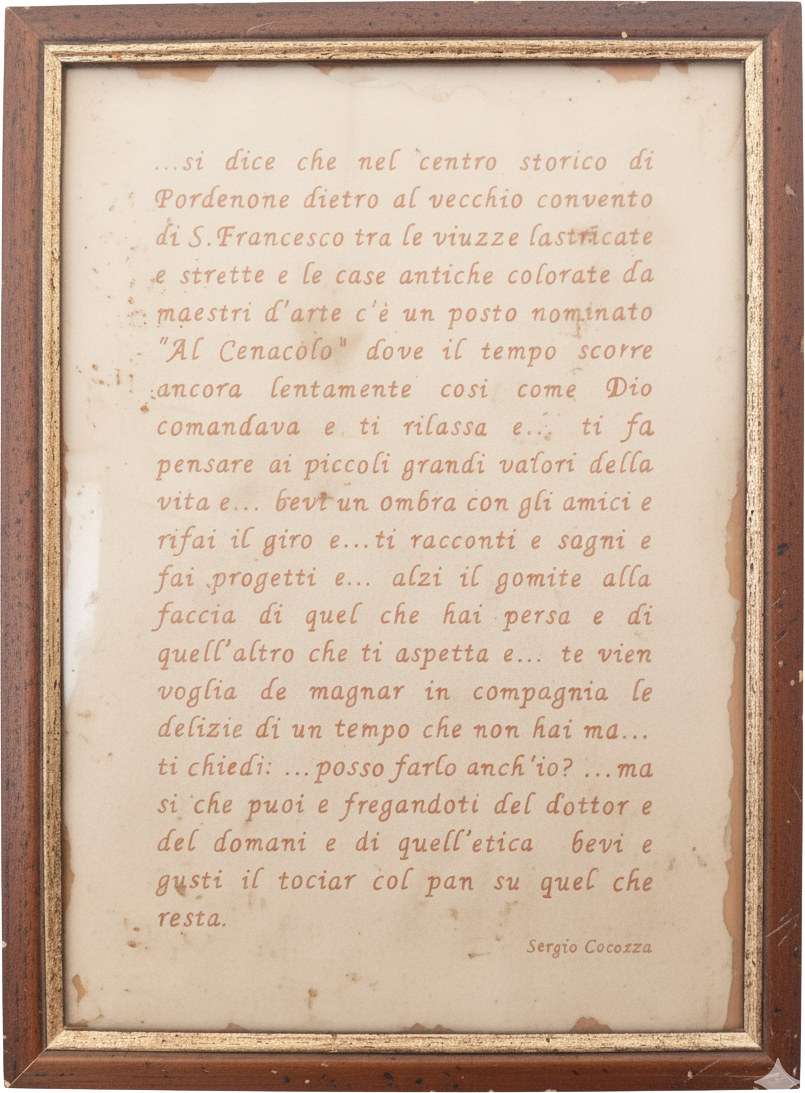 ...si dice che nel centro storico di
Pordenone dietro al vecchio convento
di S.Francesco tra le viuzze lastricate
e strette e le case antiche colorate da
maestri d'arte c'è un posto nominato
"Al Cenacolo" dove il tempo scorre
ancora lentamente cosi come Dio
comandava e ti rilassa e... ti fa
pensare ai piccoli grandi valori della
vita e... bevi un ombra con gli amici e
rifai il giro e...ti racconti e sagni e
fai progetti e... alzi il gomite alla
faccia di quel che hai persa e di
quell'altro che ti aspetta e... te vien
voglia de magnar in compagnia le
delizie di un tempo che non hai ma...
ti chiedi: ...posso farlo anch'io? ...ma
si che puoi e fregandoti del dottor e
del domani e di quell'etica bevi e
gusti il tociar col pan su quel che
resta.
Sergio Cocozza